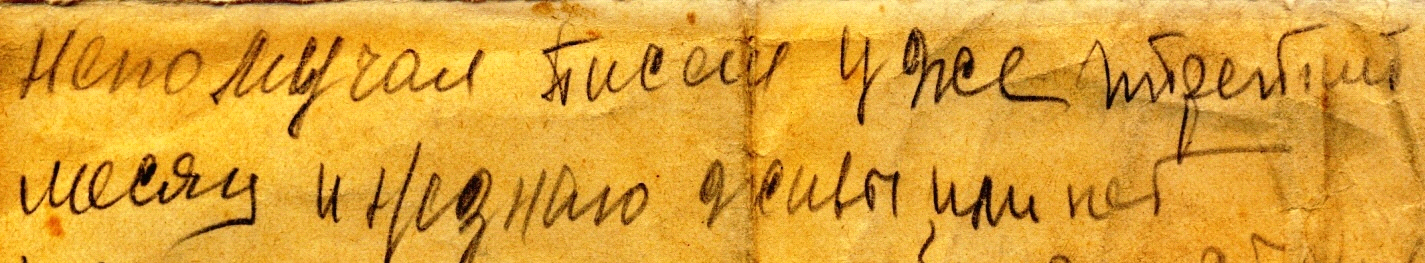 неполучал писем уже третий
месяц и незнаю живы или нет